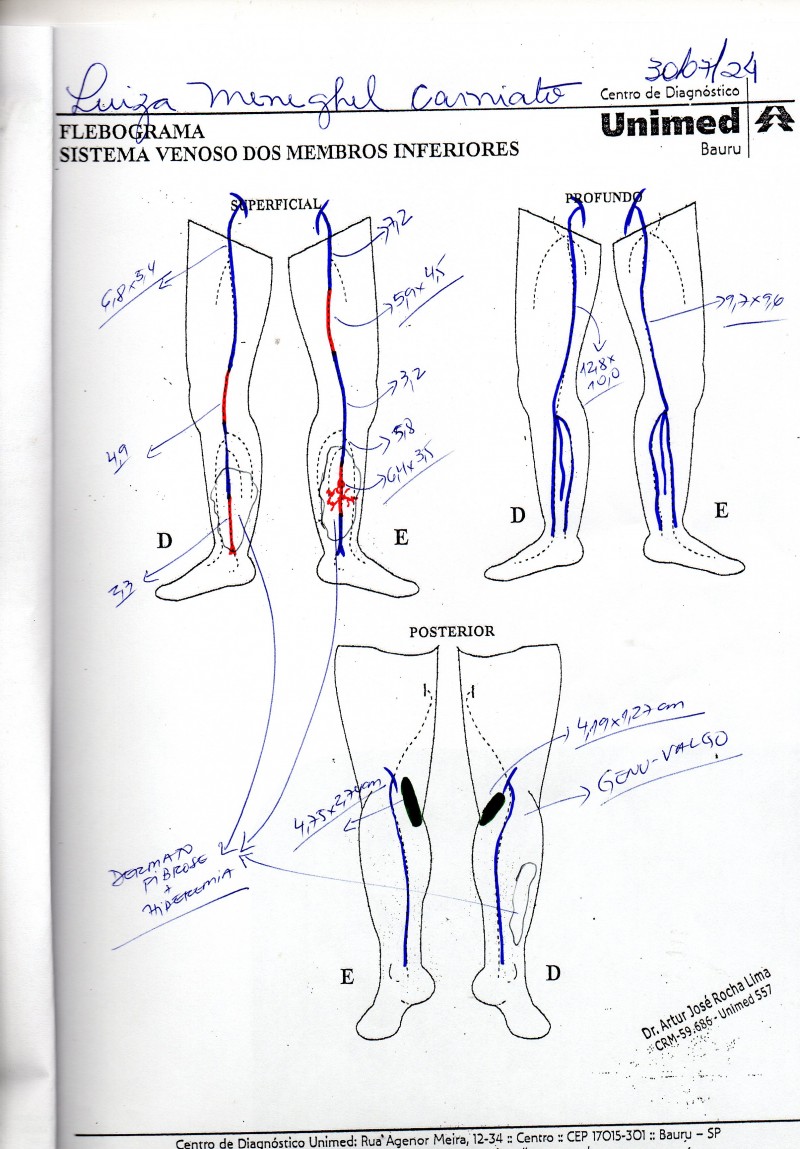 Luiza Meneghel Carniato
30/07/24
Centro de Diagnóstico
Unimed
Bauru
FLEBOGRAMA
SISTEMA VENOSO DOS MEMBROS INFERIORES
SUPERFICIAL
PROFUNDO
7,2
6,8 x 5,4
5,9 x 4,5
9,7 x 9,6
12,8 x
10,0
3,2
5,8
4,9
6,4 x 3,5
D
E
D
E
3,3
POSTERIOR
4,19 x 1,27 cm
GENU-VALGO
4,75 x 2,74 cm
DERMATO
FIBROSE
+
HIPEREMIA
E
D
Dr. Artur José Rocha Lima
CRM-59.686 - Unimed 557
Centro de Diagnóstico Unimed: Rua Agenor Meira, 12-34 :: Centro :: CEP 17015-301 :: Bauru – SP